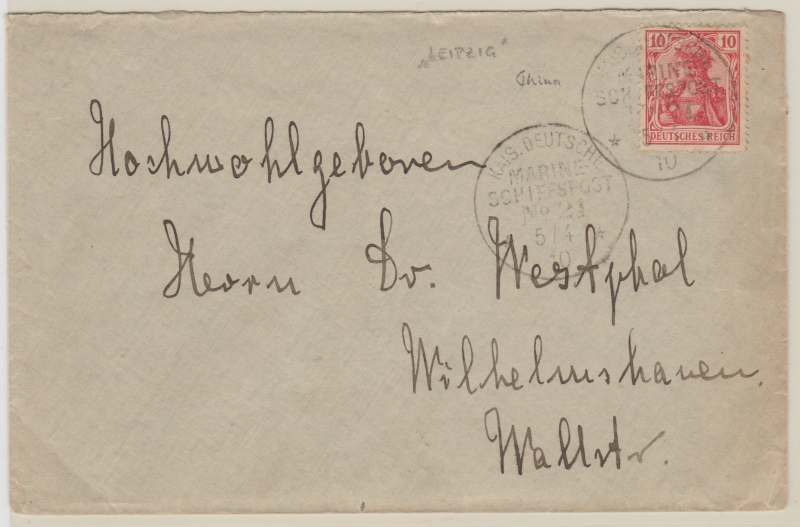 „LEIPZIG“
China
10 10
DEUTSCHES REICH
MARINE
SCHIFFSPOST
10
KAIS. DEUTSCHE
MARINE-
SCHIFFSPOST
No 21
5/4 *
10
Hochwohlgeboren
Herrn Dr. Westphal
Wilhelmshaven.
Wallstr.